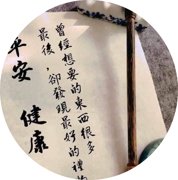 曾經想要的東西很多
最後，卻發現最好的禮
平安 健康